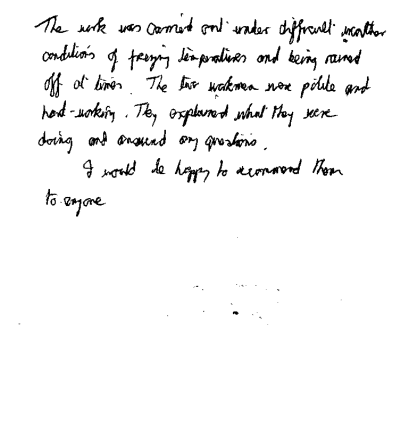 The work was carried out under difficult weather
conditions of freezing temperatures and being rained
off at times. The two workmen were polite and
hard-working. They explained what they were
doing and answered any questions.
I would be happy to recommend them
to anyone